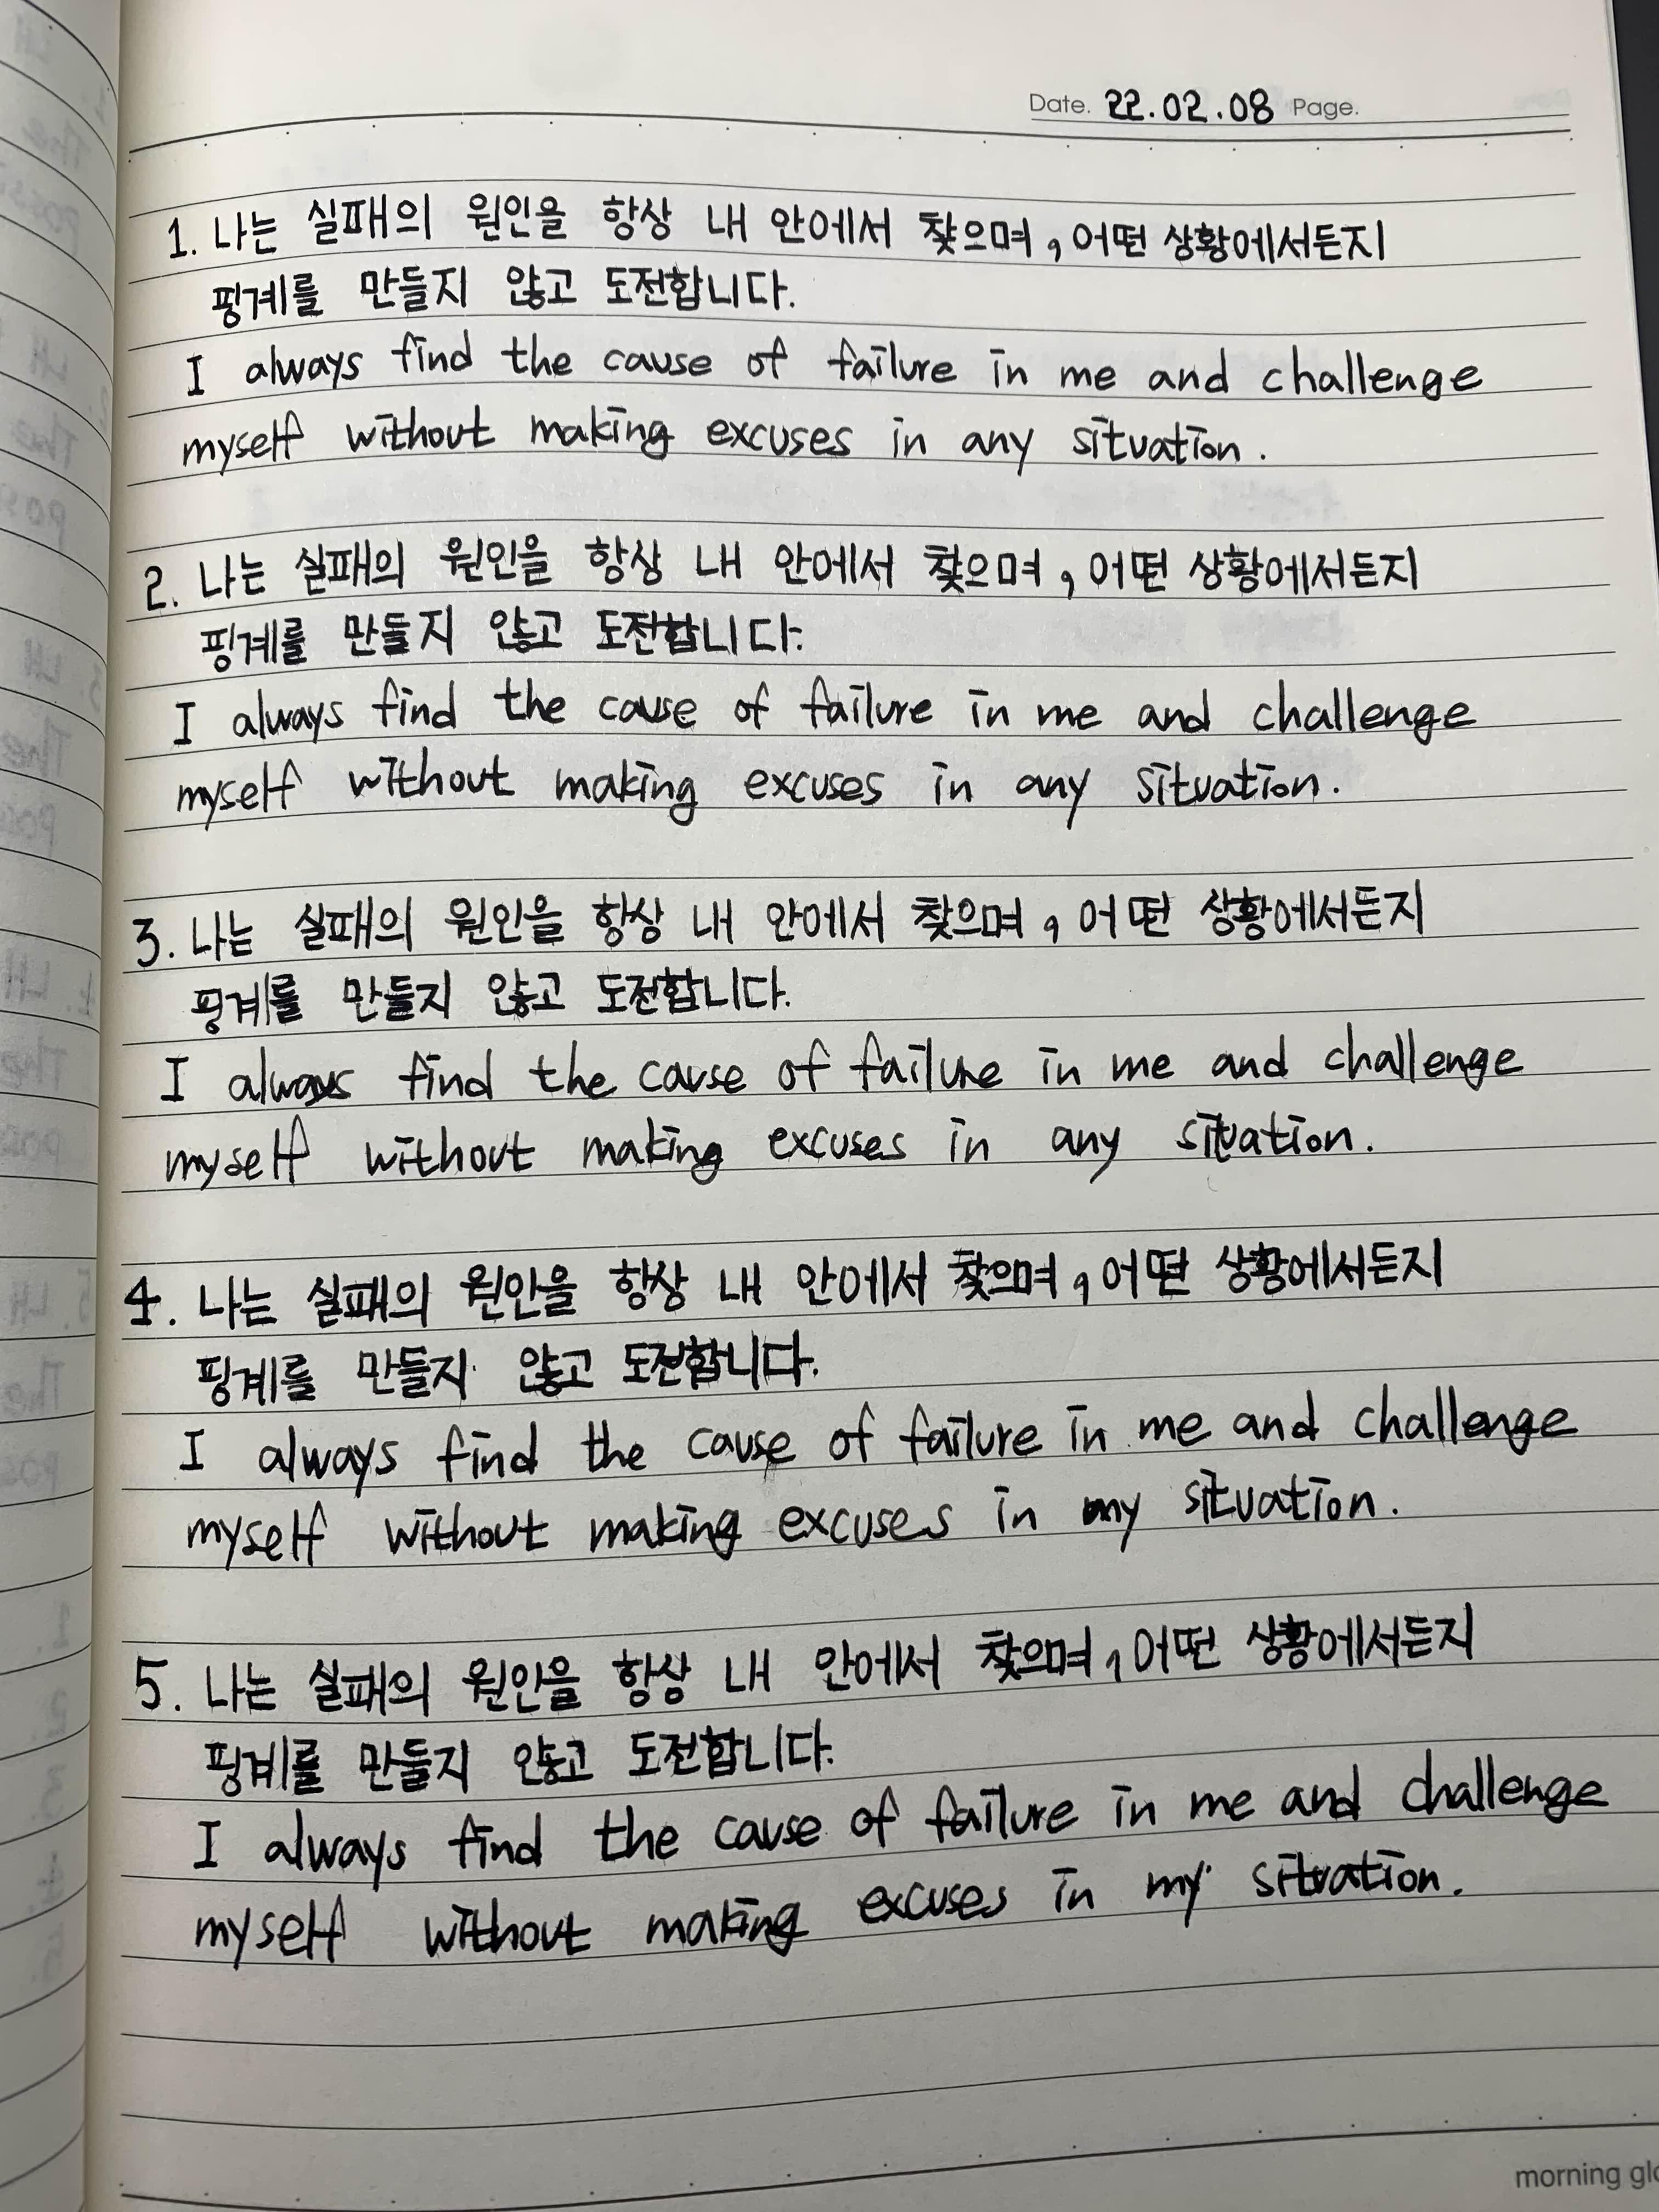 Date. 22.02.08 Page.
1. 나는 실패의 원인을 항상 내 안에서 찾으며, 어떤 상황에서든지
핑계를 만들지 않고 도전합니다.
I always find the cause of failure in me and challenge
myself without making excuses in any situation.
2. 나는 실패의 원인을 항상 내 안에서 찾으며, 어떤 상황에서든지
핑계를 만들지 않고 도전합니다.
I always find the cause of failure in me and challenge
myself without making excuses in any situation.
3. 나는 실패의 원인을 항상 내 안에서 찾으며, 어떤 상황에서든지
핑계를 만들지 않고 도전합니다.
I always find the cause of failure in me and challenge
myself without making excuses in any situation.
4. 나는 실패의 원인을 항상 내 안에서 찾으며, 어떤 상황에서든지
핑계를 만들지 않고 도전합니다.
I always find the cause of failure in me and challenge
myself without making excuses in any situation.
5. 나는 실패의 원인을 항상 내 안에서 찾으며, 어떤 상황에서든지
핑계를 만들지 않고 도전합니다.
I always find the cause of failure in me and challenge
myself without making excuses in my situation.
morning glo